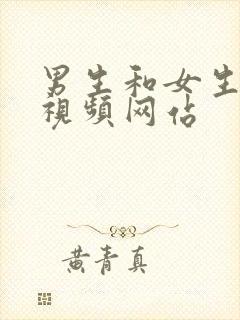 男生和女生
视频网佔
黄青真